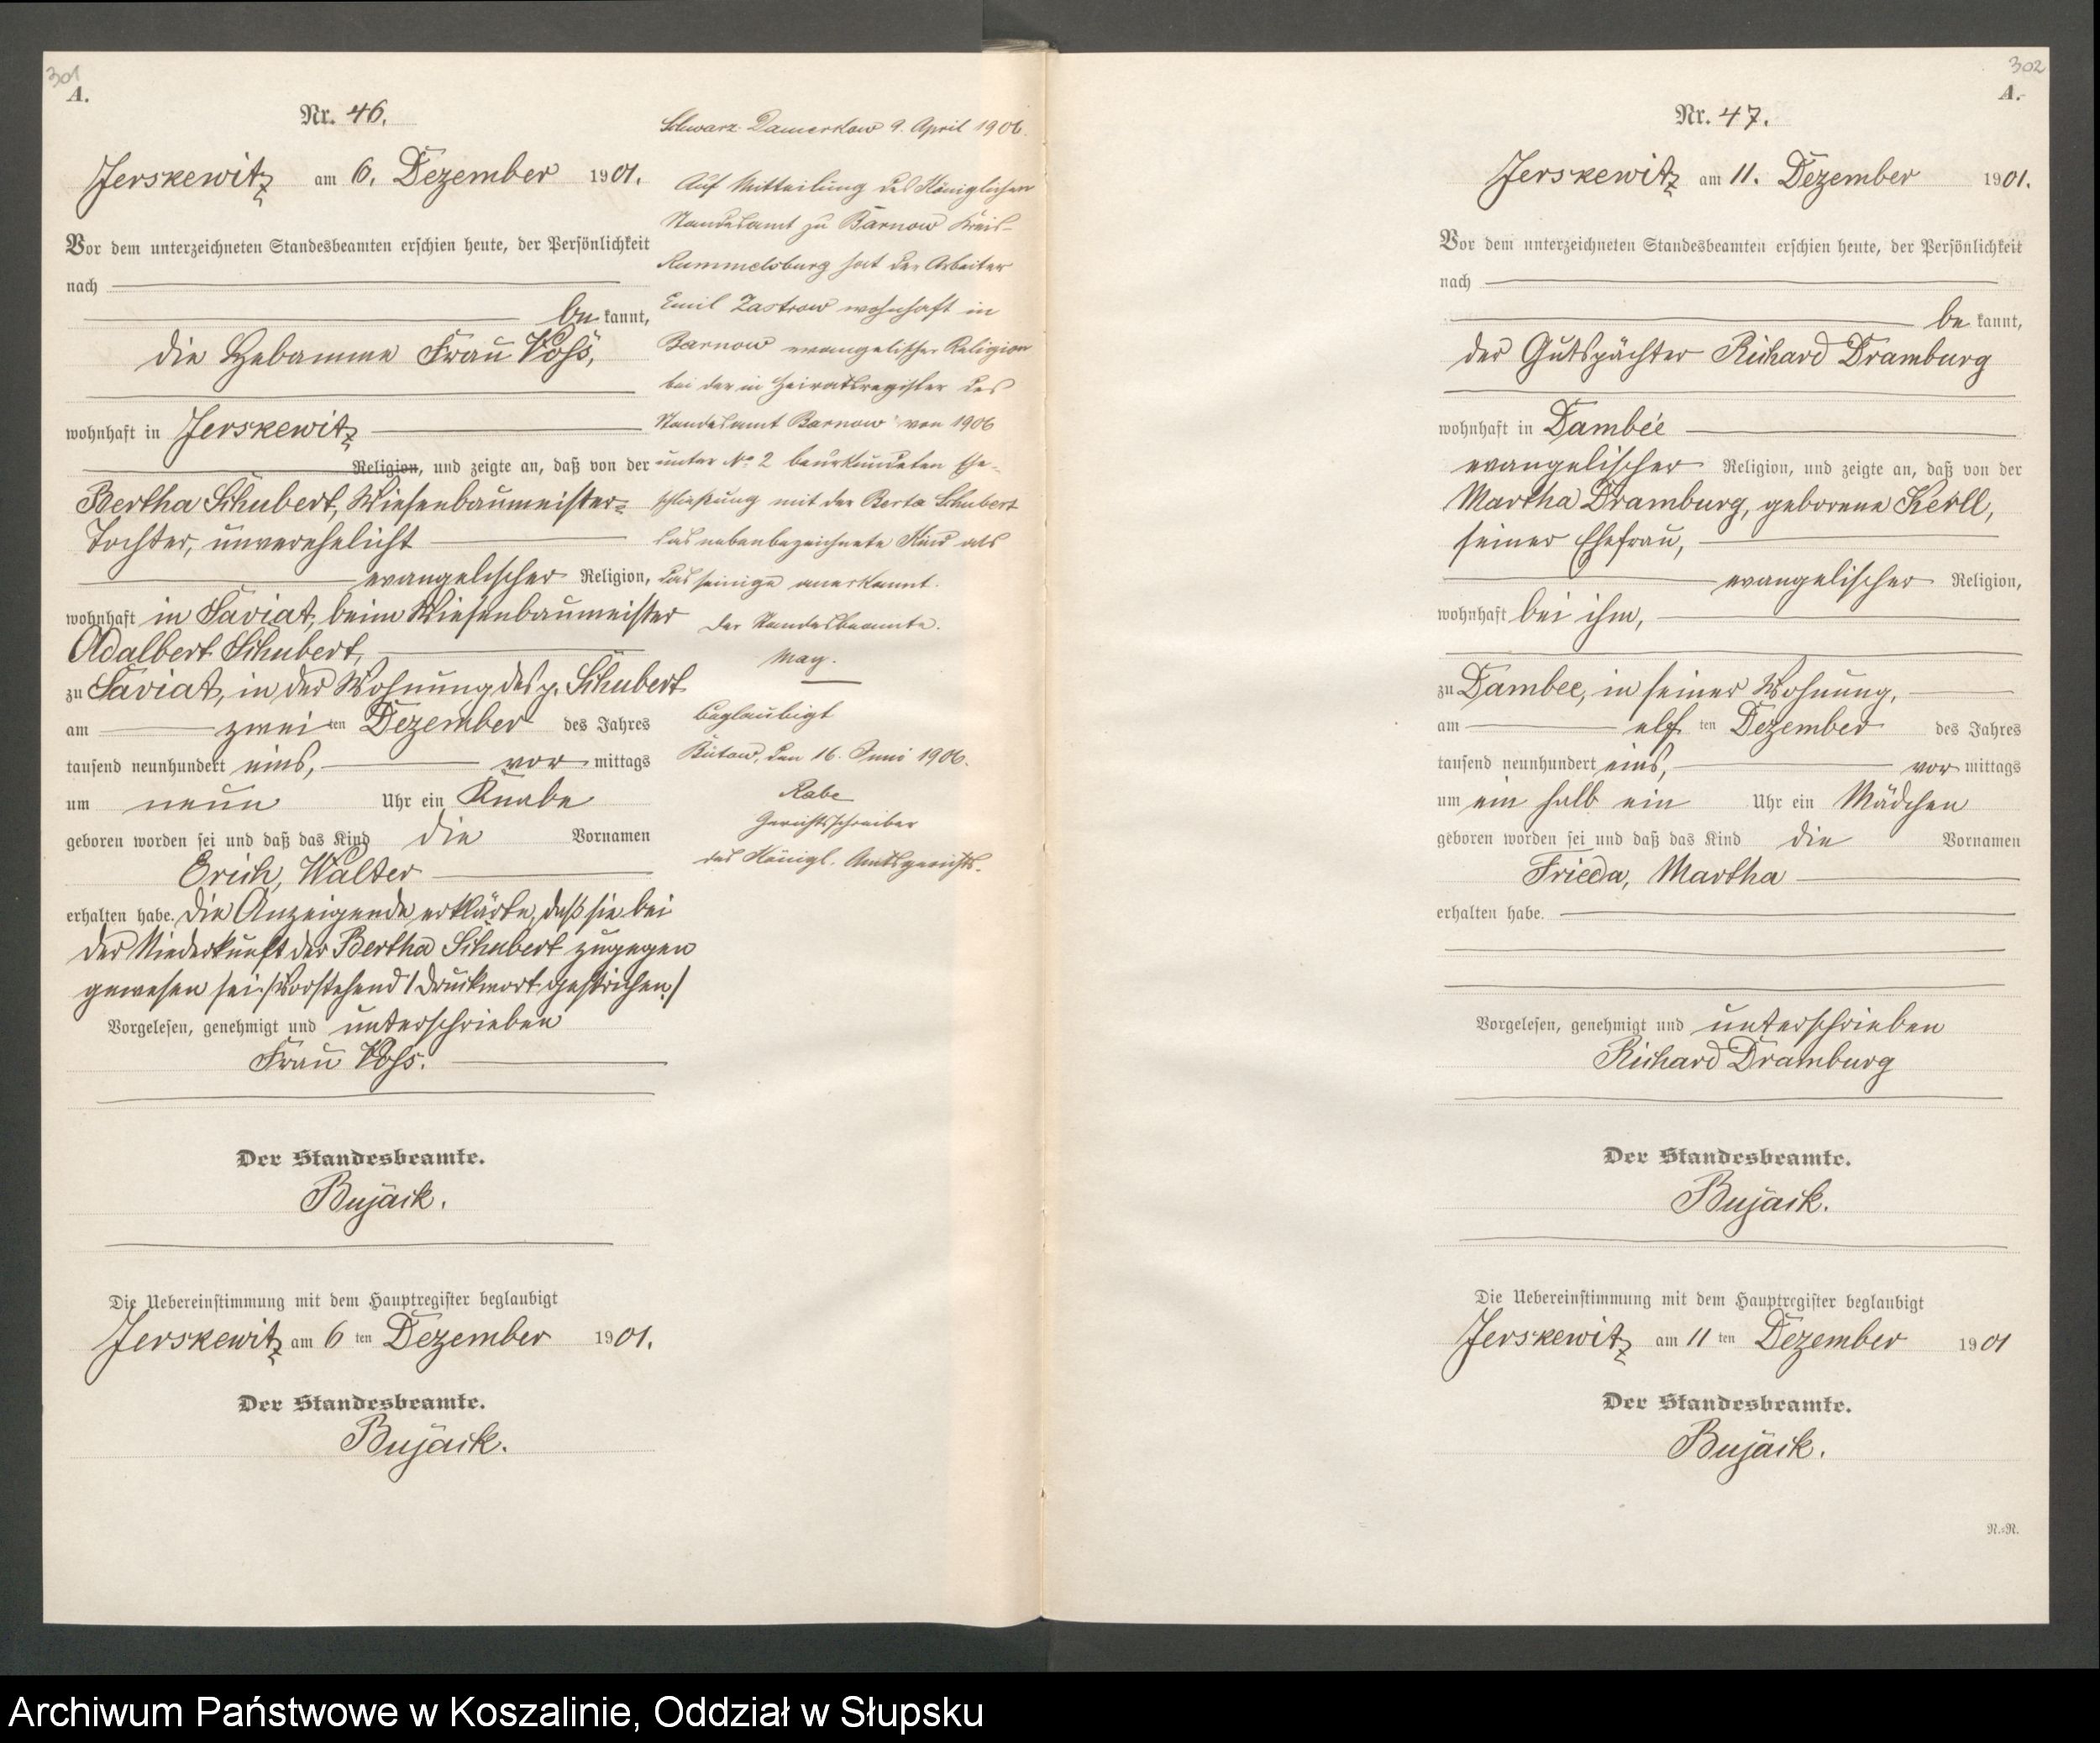 301
A.
Nr. 46.
Jerskewitz am 6. Dezember 1901.
Vor dem unterzeichneten Standesbeamten erschien heute, der Persönlichkeit
nach
be kannt,
die Hebamme Frau Voß,
wohnhaft in Jerskewitz
Religion, und zeigte an, daß von der
Bertha Schubert, Wiesenbaumeister-
Tochter, unverehelicht
evangelischer Religion,
wohnhaft in Saviat, beim Wiesenbaumeister
Adalbert Schubert,
zu Saviat, in der Wohnung des p. Schubert
am zwei ten Dezember des Jahres
tausend neunhundert eins, vor mittags
um neun Uhr ein Knabe
geboren worden sei und daß das Kind die Vornamen
Erich, Walter
erhalten habe. Die Anzeigende erklärte, daß sie bei
der Niederkunft der Bertha Schubert zugegen
gewesen sei. /Vorstehend 1 Druckwort gestrichen./
Vorgelesen, genehmigt und unterschrieben
Frau Voß.
Der Standesbeamte.
Bujack.
Die Uebereinstimmung mit dem Hauptregister beglaubigt
Jerskewitz am 6 ten Dezember 1901.
Der Standesbeamte.
Bujack.
Schwarz Damerkow 9. April 1906.
Auf Mitteilung des Königlichen
Standesamt zu Barnow Kreis-
Rummelsburg hat der Arbeiter
Emil Zastrow wohnhaft in
Barnow evangelischer Religion
bei der in Heiratsregister des
Standesamt Barnow von 1906
unter No 2 beurkundeten Ehe-
schließung mit der Berta Schubert
das nebenbezeichnete Kind als
das seinige anerkannt.
Der Standesbeamte.
May.
Beglaubigt
Bütow, den 16. Juni 1906.
Rabe
Gerichtsschreiber
des Königl. Amtsgerichts.
302
A.
Nr. 47.
Jerskewitz am 11. Dezember 1901.
Vor dem unterzeichneten Standesbeamten erschien heute, der Persönlichkeit
nach
be kannt,
der Gutspächter Richard Dramburg
wohnhaft in Dambee
evangelischer Religion, und zeigte an, daß von der
Martha Dramburg, geborene Kerll,
seiner Ehefrau,
evangelischer Religion,
wohnhaft bei ihm,
zu Dambee, in seiner Wohnung,
am elf ten Dezember des Jahres
tausend neunhundert eins, vor mittags
um ein halb ein Uhr ein Mädchen
geboren worden sei und daß das Kind die Vornamen
Frieda, Martha
erhalten habe.
Vorgelesen, genehmigt und unterschrieben
Richard Dramburg
Der Standesbeamte.
Bujack.
Die Uebereinstimmung mit dem Hauptregister beglaubigt
Jerskewitz am 11 ten Dezember 1901
Der Standesbeamte.
Bujack.
N.-N.
Archiwum Państwowe w Koszalinie, Oddział w Słupsku